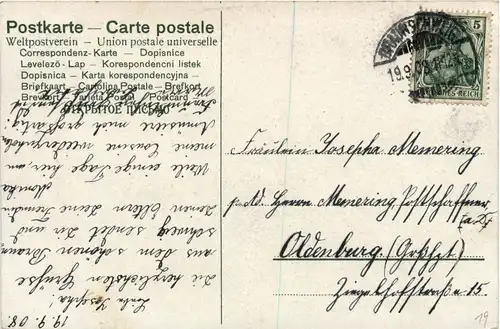 Postkarte — Carte postale
Weltpostverein – Union postale universelle
Correspondenz-Karte — Dopisnice
Levelező-Lap — Korespondencni listek
Dopisnica — Karta korespondencyjna
Briefkaart — Cartolina Postale — Brefkort
Brevkort — Tarjeta Postal — Postcard
ОТКРЫТОЕ ПИСЬМО
BRAUNSCHWEIG
19.9.08
5
DEUTSCHES REICH
Fräulein Josepha Memering
p. Ad. Herrn Memering Postschaffner
(a.D.)
Oldenburg (Großhzt.)
Ziegelhofstraße 15.
19
19. 9. 08
Liebe Josepha!
Die herzlichsten Grüße
aus dem schönen Braun-
schweig sendet Dir und
Deinen Eltern Deine Freundin
Monika
Weile einige Tage hier, um
meine Cousine wiederzusehen.
Amüsiere mich großartig!